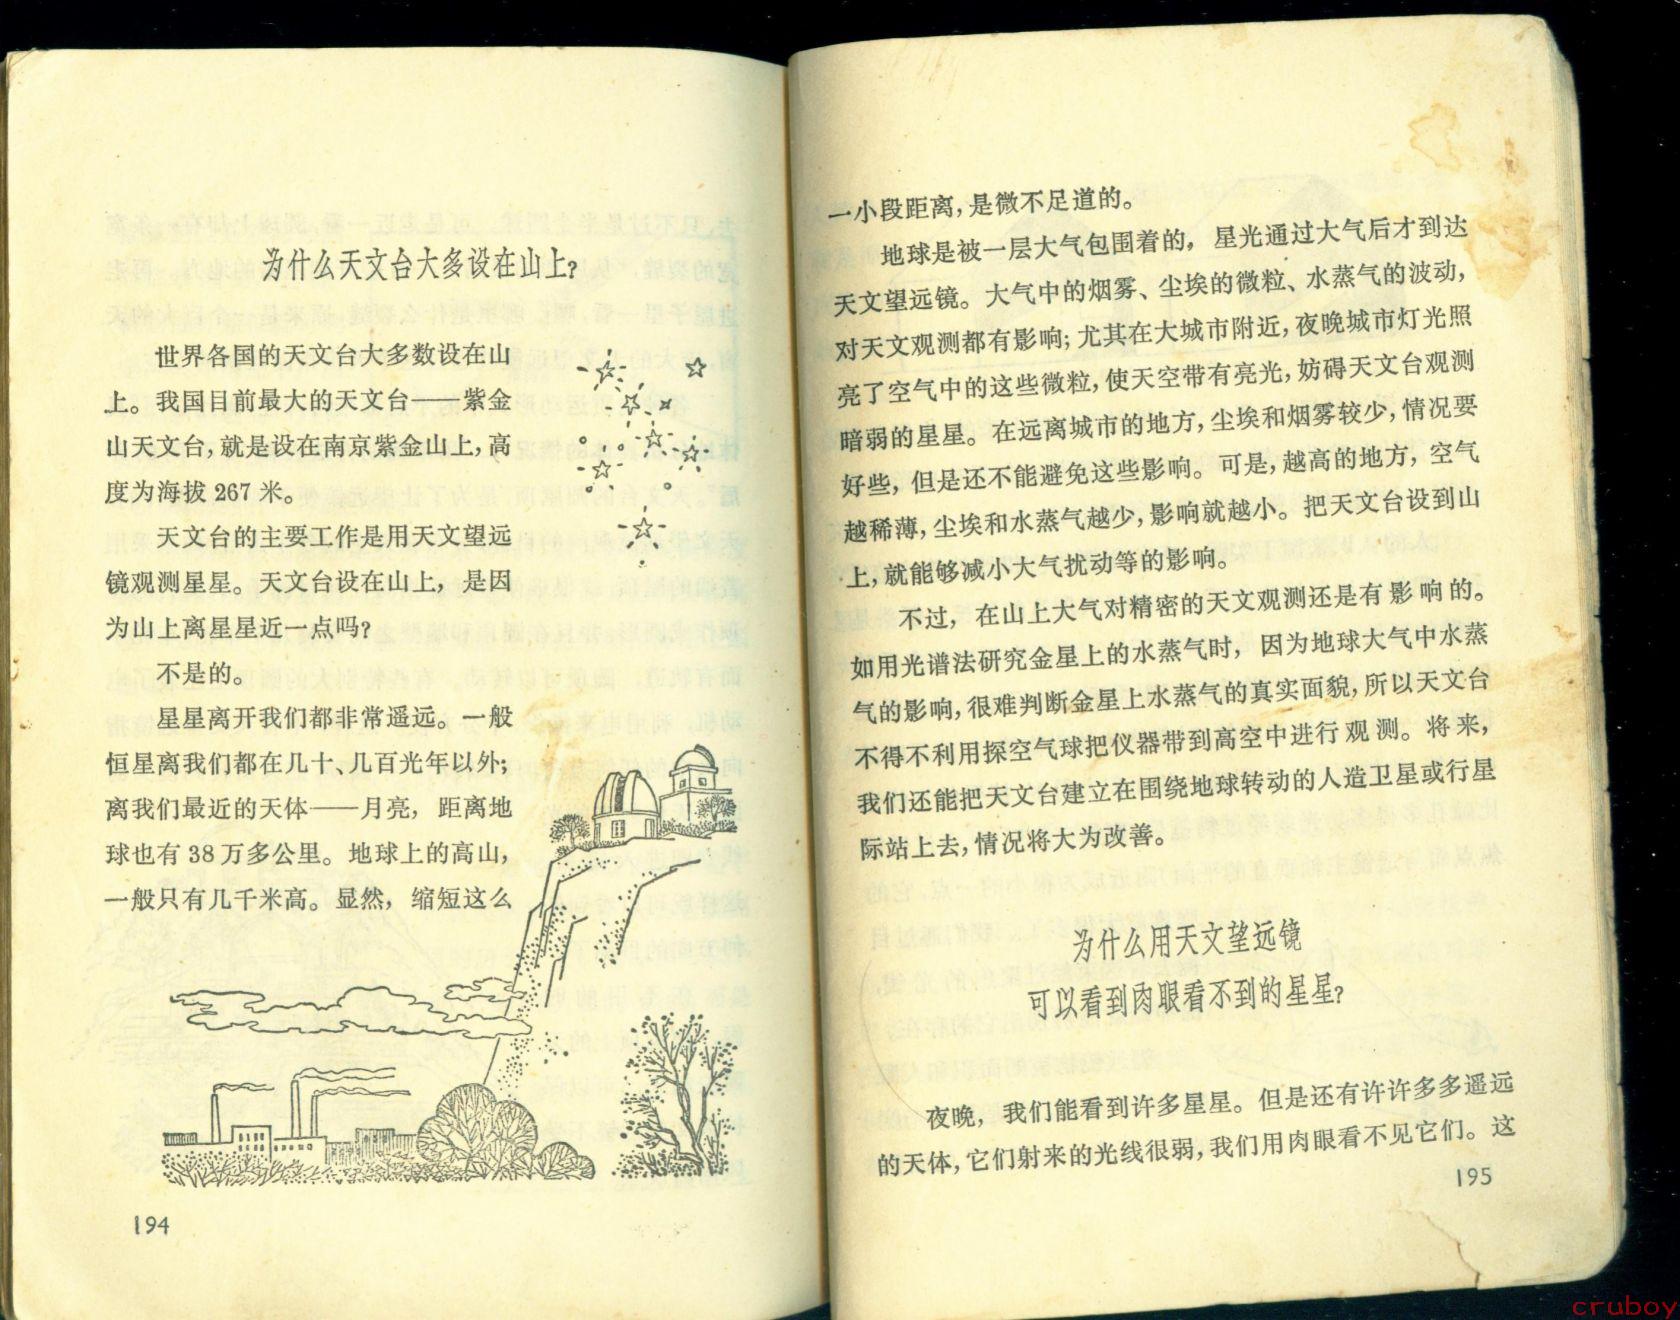 为什么天文台大多设在山上?
世界各国的天文台大多数设在山
上。我国目前最大的天文台——紫金
山天文台,就是设在南京紫金山上,高
度为海拔 267 米。
天文台的主要工作是用天文望远
镜观测星星。天文台设在山上，是因
为山上离星星近一点吗?
不是的。
星星离开我们都非常遥远。一般
恒星离我们都在几十、几百光年以外;
离我们最近的天体——月亮，距离地
球也有 38 万多公里。地球上的高山,
一般只有几千米高。显然，缩短这么
194
一小段距离,是微不足道的。
地球是被一层大气包围着的，星光通过大气后才到达
天文望远镜。大气中的烟雾、尘埃的微粒、水蒸气的波动,
对天文观测都有影响;尤其在大城市附近,夜晚城市灯光照
亮了空气中的这些微粒,使天空带有亮光,妨碍天文台观测
暗弱的星星。在远离城市的地方,尘埃和烟雾较少,情况要
好些，但是还不能避免这些影响。可是,越高的地方，空气
越稀薄,尘埃和水蒸气越少,影响就越小。把天文台设到山
上,就能够减小大气扰动等的影响。
不过，在山上大气对精密的天文观测还是有影响的。
如用光谱法研究金星上的水蒸气时，因为地球大气中水蒸
气的影响,很难判断金星上水蒸气的真实面貌,所以天文台
不得不利用探空气球把仪器带到高空中进行观测。将来,
我们还能把天文台建立在围绕地球转动的人造卫星或行星
际站上去,情况将大为改善。
为什么用天文望远镜
可以看到肉眼看不到的星星?
夜晚，我们能看到许多星星。但是还有许许多多遥远
的天体,它们射来的光线很弱,我们用肉眼看不见它们。这
195
cruboy